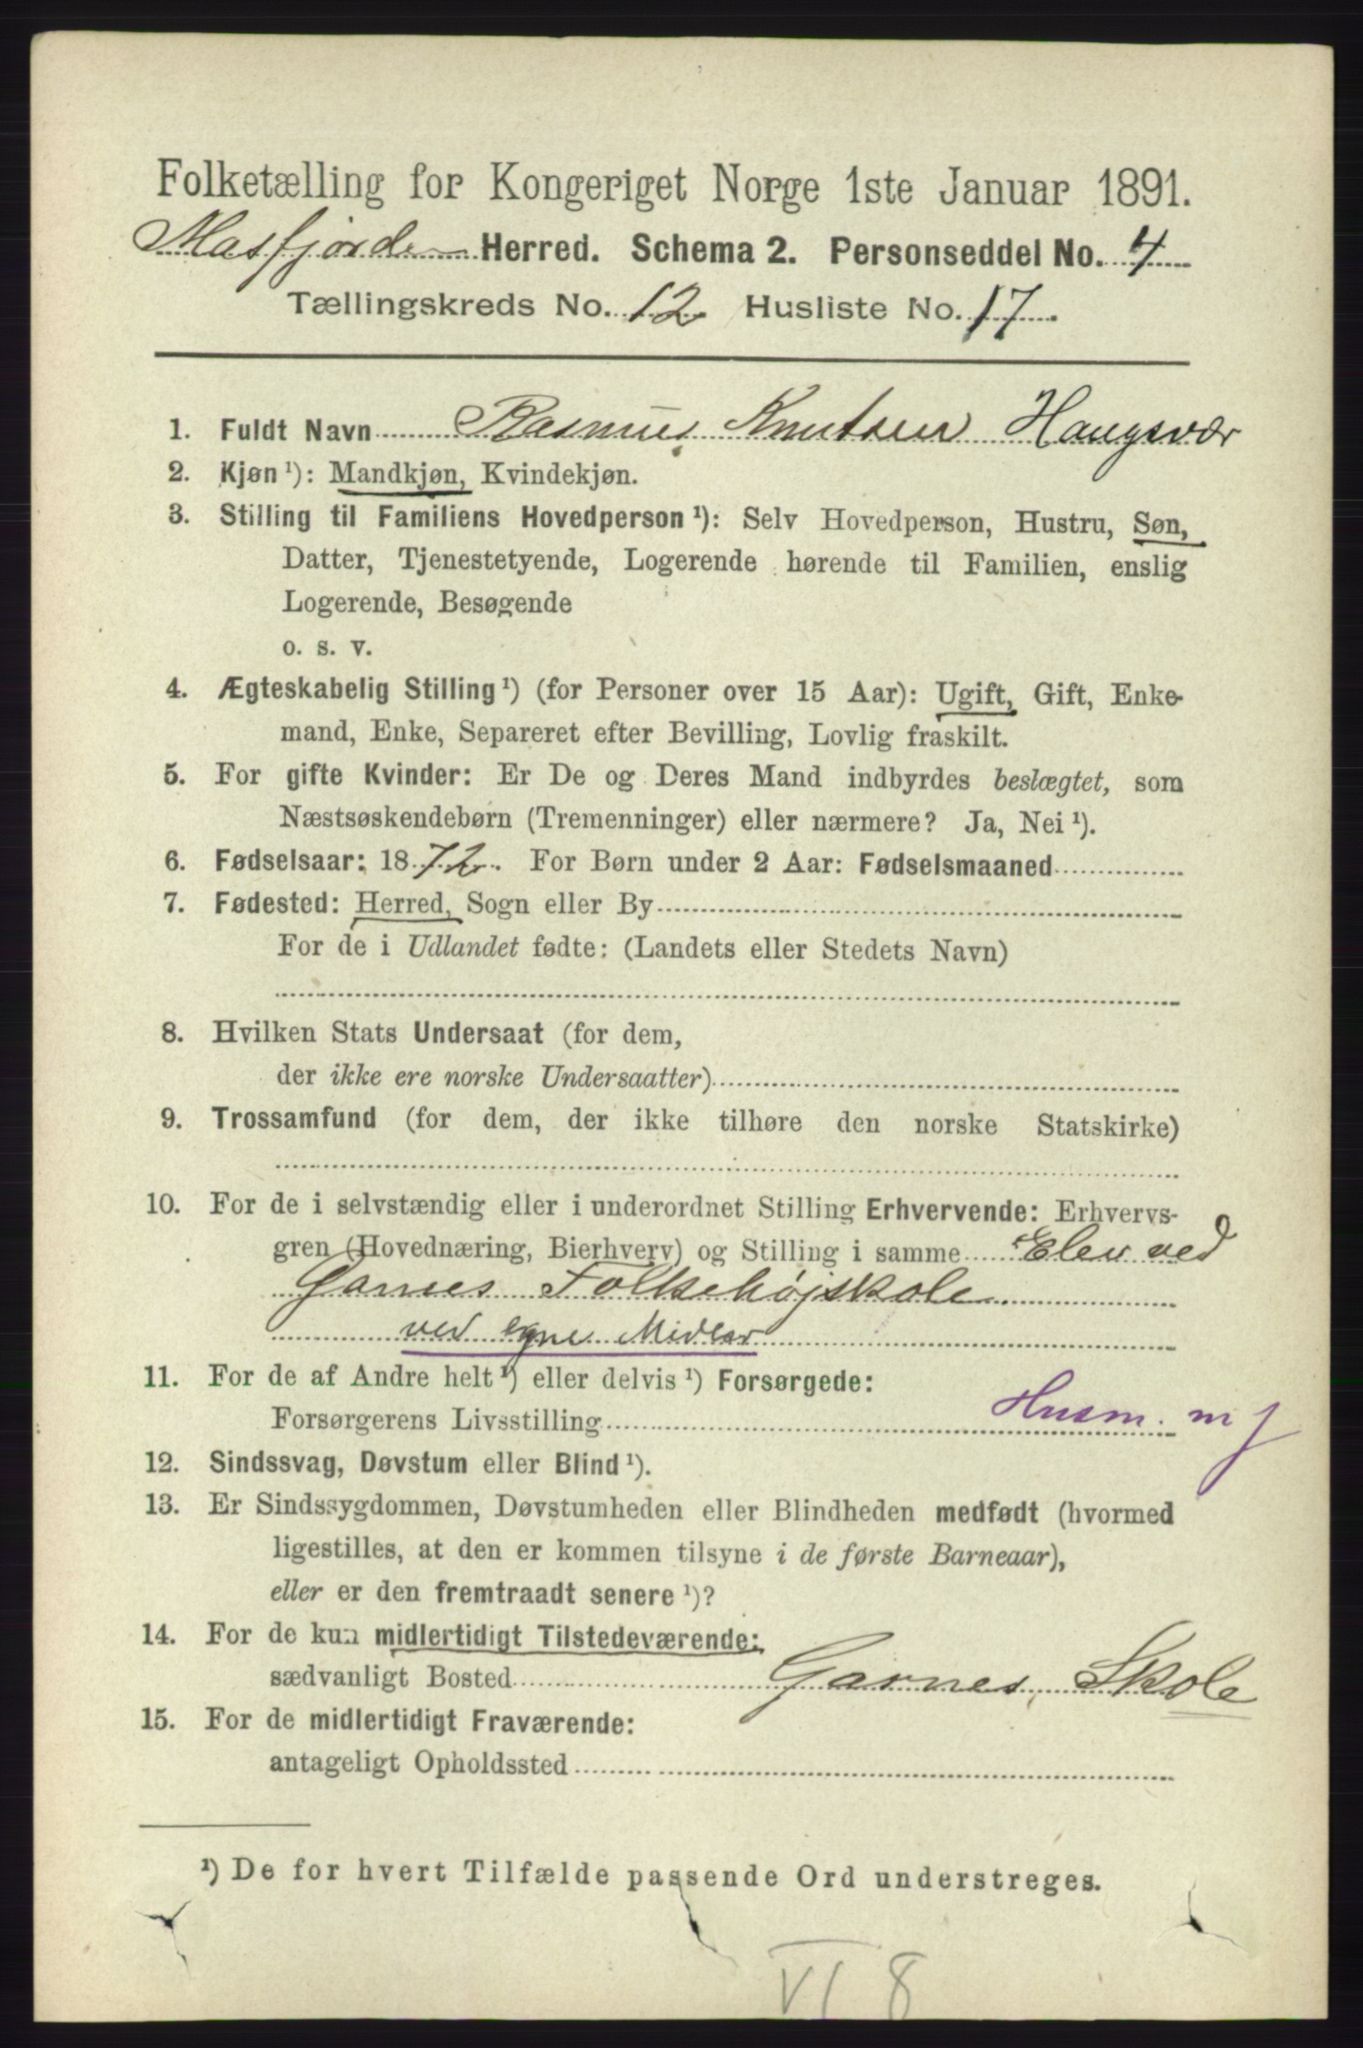 Folketælling for Kongeriget Norge 1ste Januar 1891.
Masfjorden Herred. Schema 2. Personseddel No. 4
Tællingskreds No. 12 Husliste No. 17.
1. Fuldt Navn Rasmus Knutsen Haugsvær
2. Kjøn ¹): Mandkjøn, Kvindekjøn.
3. Stilling til Familiens Hovedperson ¹): Selv Hovedperson, Hustru, Søn,
Datter, Tjenestetyende, Logerende hørende til Familien, enslig
Logerende, Besøgende
o. s. v.
4. Ægteskabelig Stilling ¹) (for Personer over 15 Aar): Ugift, Gift, Enke-
mand, Enke, Separeret efter Bevilling, Lovlig fraskilt.
5. For gifte Kvinder: Er De og Deres Mand indbyrdes beslægtet, som
Næstsøskendebørn (Tremenninger) eller nærmere? Ja, Nei ¹).
6. Fødselsaar: 1872. For Børn under 2 Aar: Fødselsmaaned
7. Fødested: Herred, Sogn eller By
For de i Udlandet fødte: (Landets eller Stedets Navn)
8. Hvilken Stats Undersaat (for dem,
der ikke ere norske Undersaatter)
9. Trossamfund (for dem, der ikke tilhøre den norske Statskirke)
10. For de i selvstændig eller i underordnet Stilling Erhvervende: Erhvervs-
gren (Hovednæring, Bierhverv) og Stilling i samme Elev ved
Garnes Folkehøjskole
ved egne Midler
11. For de af Andre helt ¹) eller delvis ¹) Forsørgede:
Forsørgerens Livsstilling Husm. m j
12. Sindssvag, Døvstum eller Blind ¹).
13. Er Sindssygdommen, Døvstumheden eller Blindheden medfødt (hvormed
ligestilles, at den er kommen tilsyne i de første Barneaar),
eller er den fremtraadt senere ¹)?
14. For de kun midlertidigt Tilstedeværende:
sædvanligt Bosted Garnes Skole
15. For de midlertidigt Fraværende:
antageligt Opholdssted
¹) De for hvert Tilfælde passende Ord understreges.
VI 8